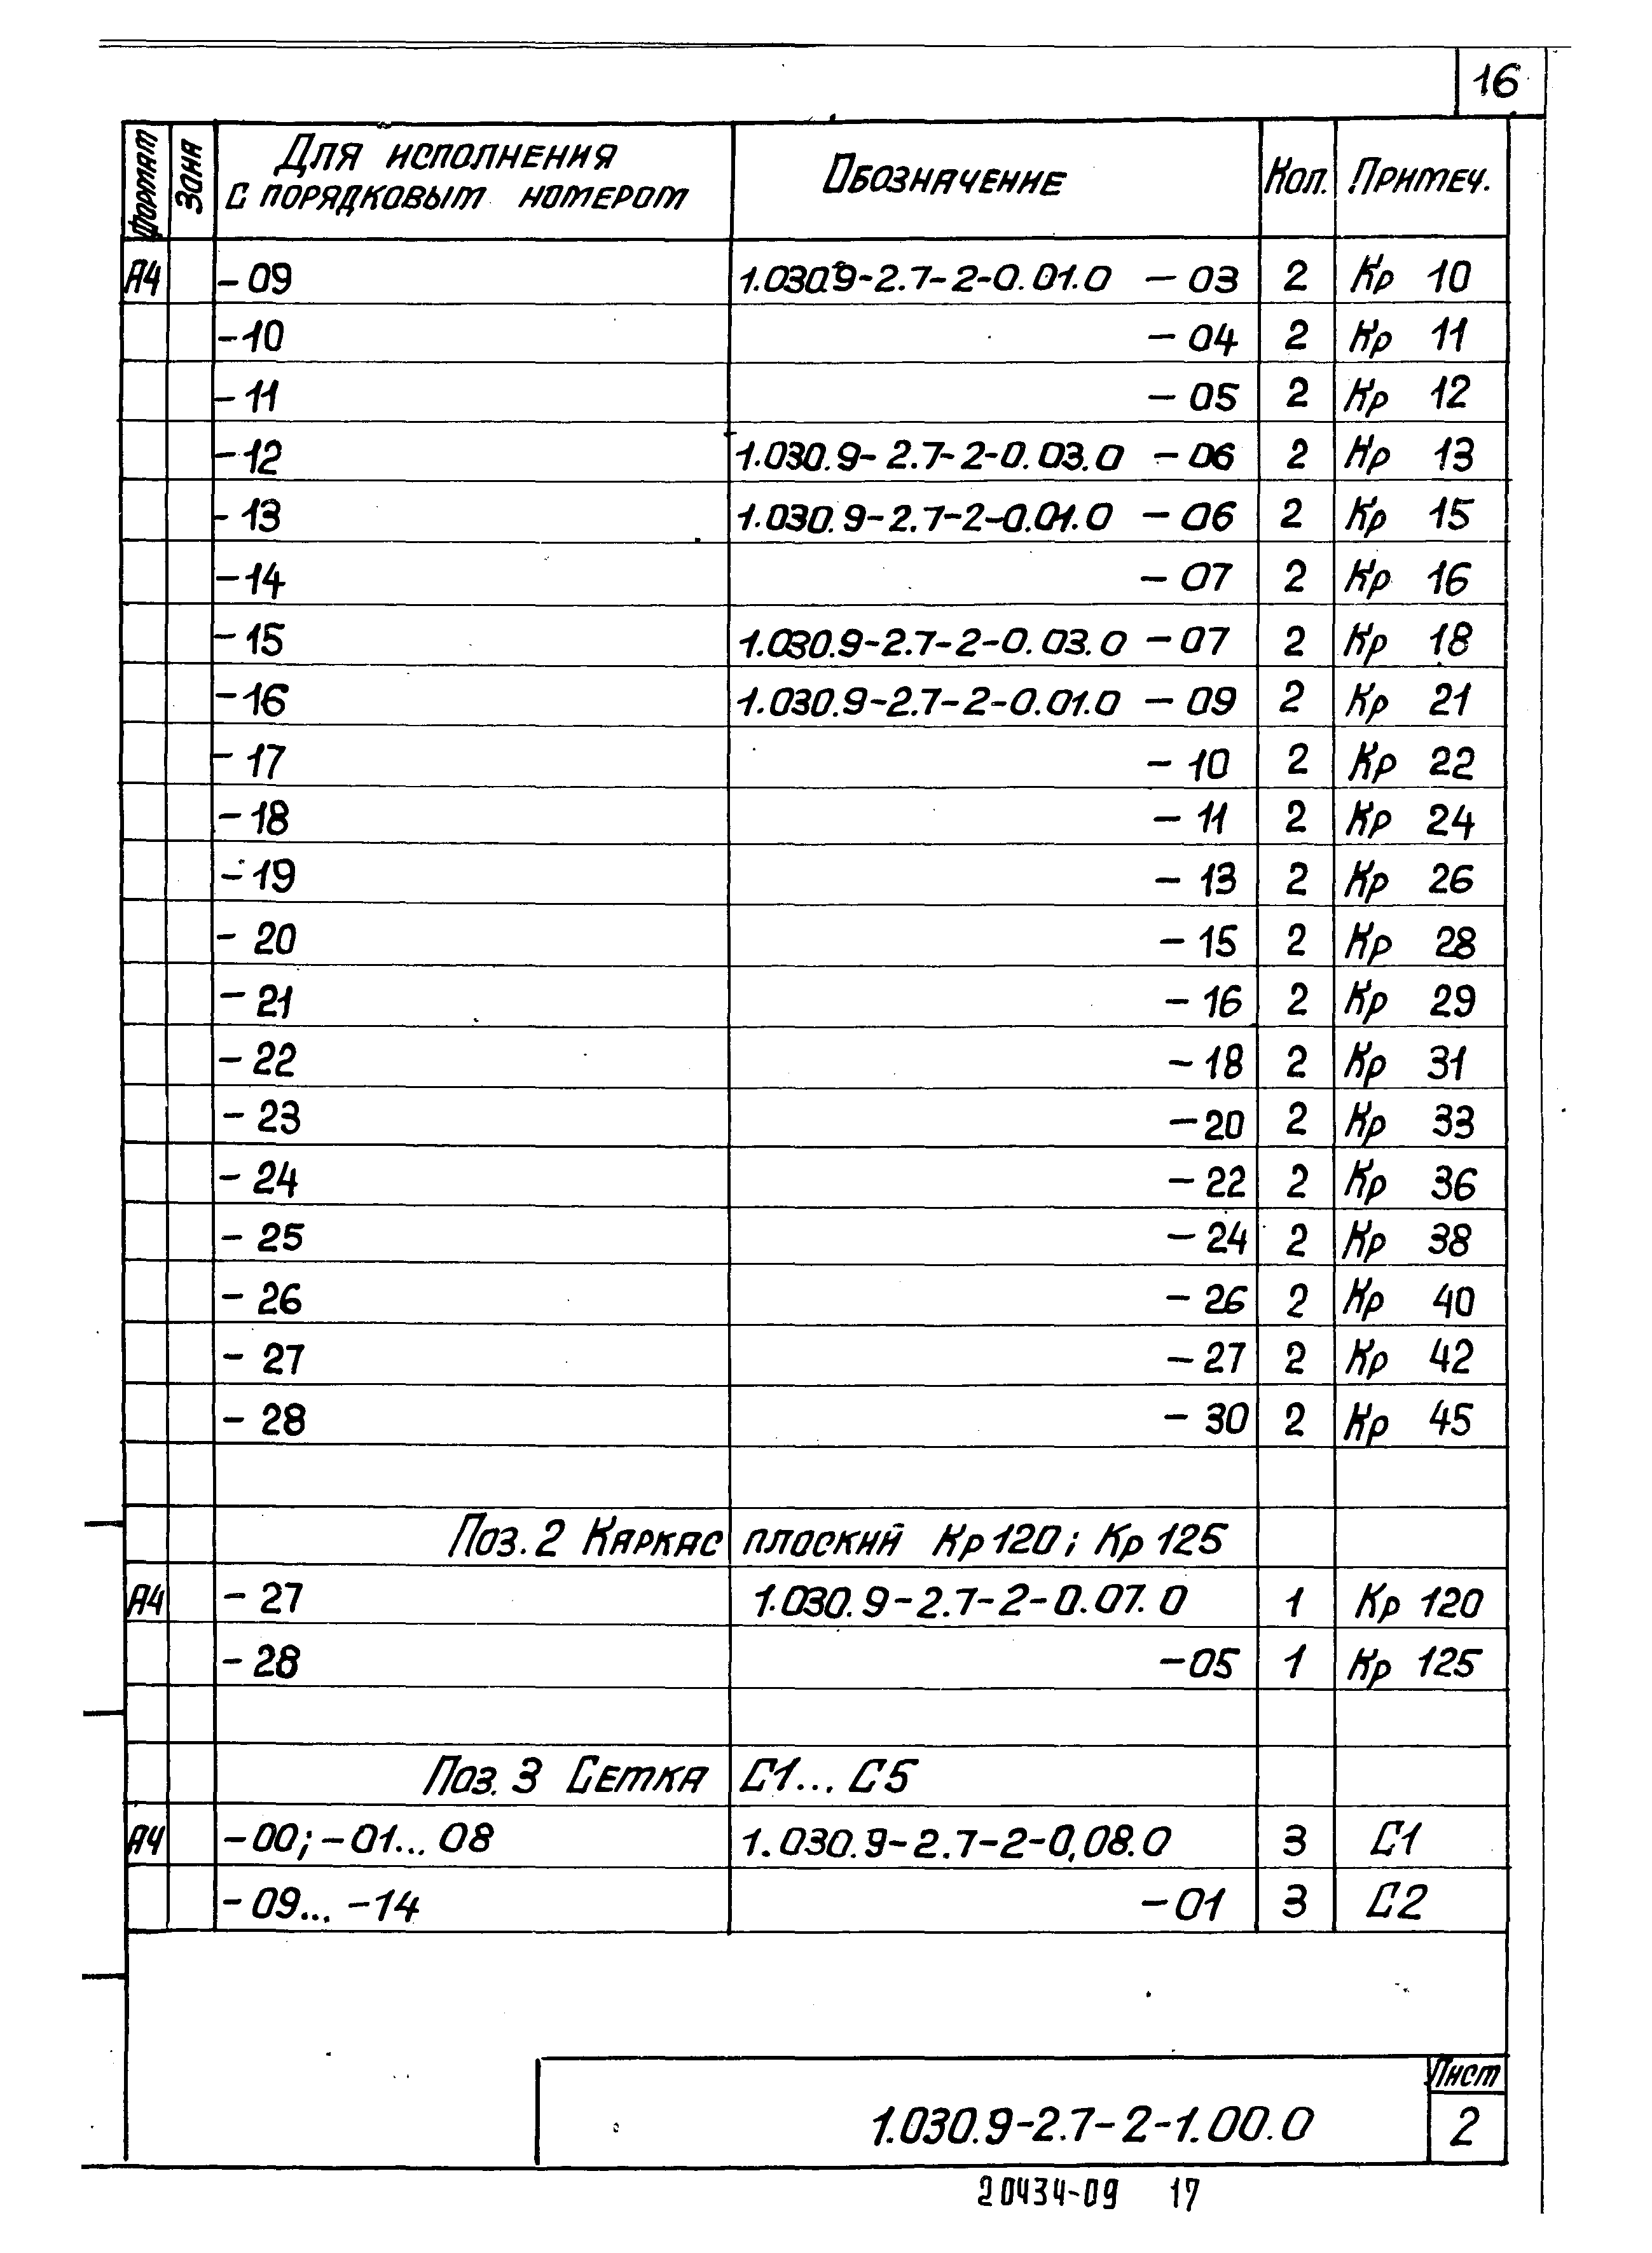 16
Формат Зона Для исполнения с порядковым номером Обозначение Кол. Примеч.
А4 -09 1.030.9-2.7-2-0.01.0 -03 2 Кр 10
-10 -04 2 Кр 11
-11 -05 2 Кр 12
-12 1.030.9-2.7-2-0.03.0 -06 2 Кр 13
-13 1.030.9-2.7-2-0.01.0 -06 2 Кр 15
-14 -07 2 Кр 16
-15 1.030.9-2.7-2-0.03.0 -07 2 Кр 18
-16 1.030.9-2.7-2-0.01.0 -09 2 Кр 21
-17 -10 2 Кр 22
-18 -11 2 Кр 24
-19 -13 2 Кр 26
-20 -15 2 Кр 28
-21 -16 2 Кр 29
-22 -18 2 Кр 31
-23 -20 2 Кр 33
-24 -22 2 Кр 36
-25 -24 2 Кр 38
-26 -26 2 Кр 40
-27 -27 2 Кр 42
-28 -30 2 Кр 45
Поз. 2 Каркас плоский Кр 120; Кр 125
А4 -27 1.030.9-2.7-2-0.07.0 1 Кр 120
-28 -05 1 Кр 125
Поз. 3 Сетка С1... С5
А4 -00; -01... 08 1.030.9-2.7-2-0,08.0 3 С1
-09... -14 -01 3 С2
1.030.9-2.7-2-1.00.0 Лист 2
20434-09 17